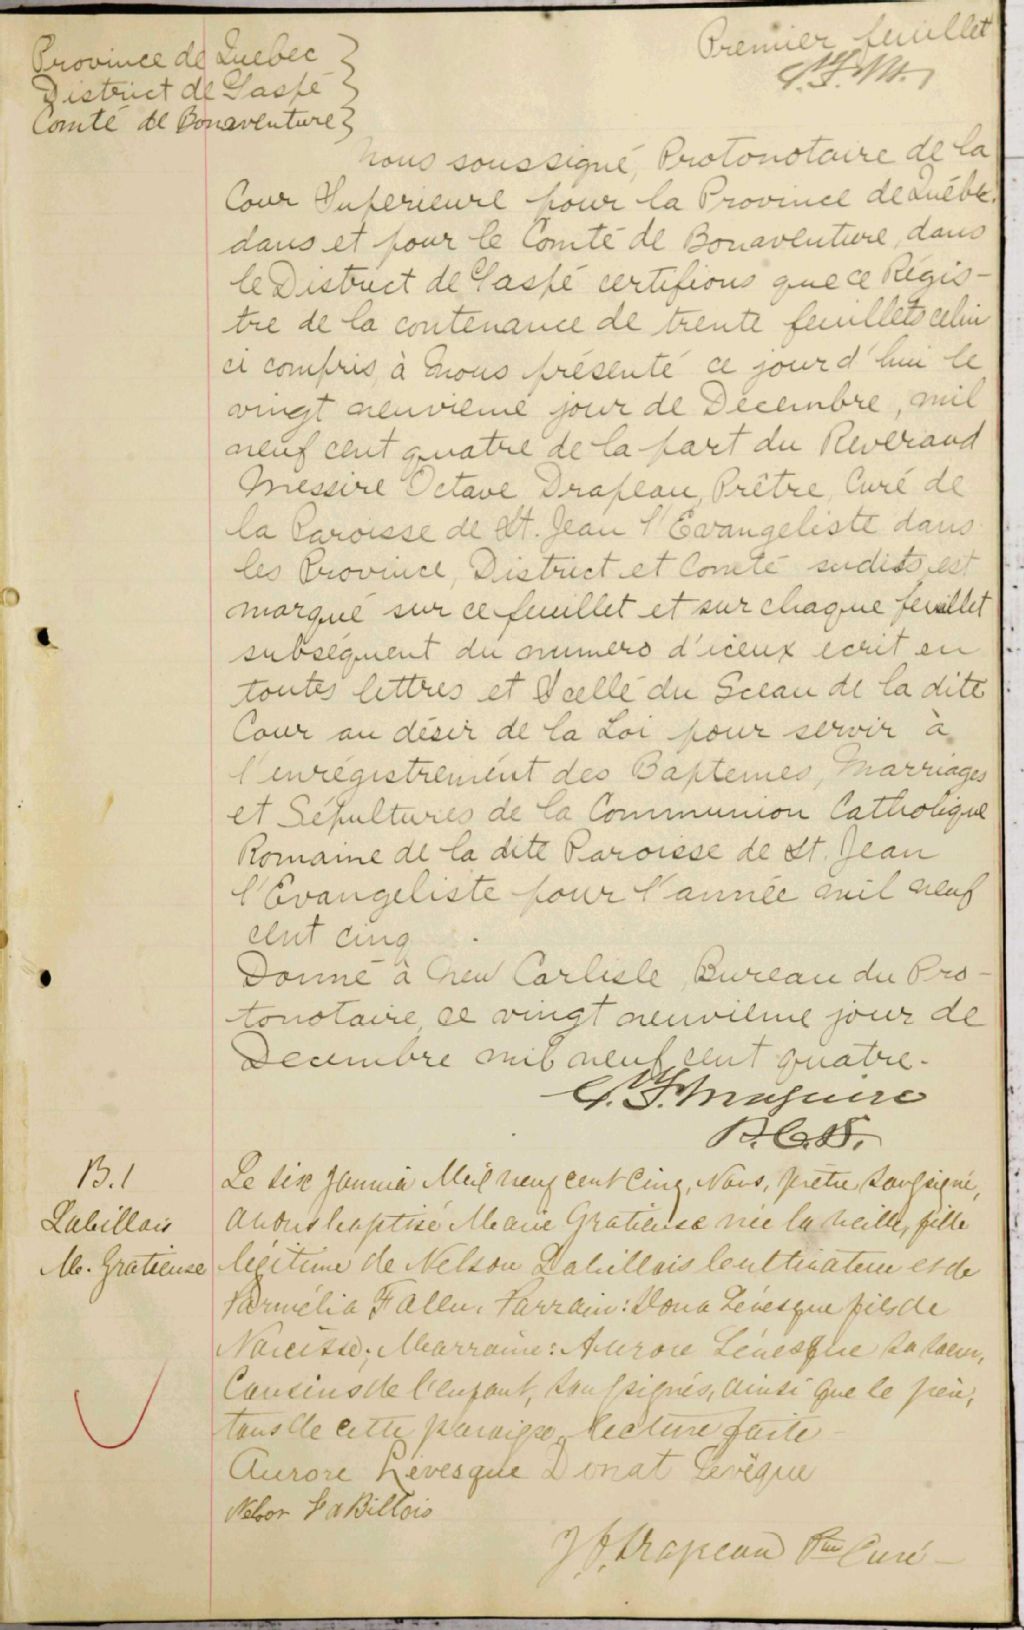 Premier feuillet
G.F.M.
Province de Quebec
District de Gaspé
Comté de Bonaventure
Nous soussigné, Protonotaire de la
Cour Superieure pour la Province de Québec,
dans et pour le Comté de Bonaventure, dans
le District de Gaspé certifions que ce Régis-
tre de la contenance de trente feuillets celui
ci compris, à Nous présenté ce jour d'hui le
vingt neuvieme jour de Decembre, mil
neuf cent quatre de la part du Reverand
Messire Octave Drapeau, Prêtre, Curé de
la Paroisse de St. Jean l'Evangeliste dans
les Province, District et Comté sudits est
marqué sur ce feuillet et sur chaque feuillet
subséquent du numero d'iceux ecrit en
toutes lettres et Scellé du Sceau de la dite
Cour au désir de la Loi pour servir à
l'enrégistremént des Baptemes, Marriages
et Sépultures de la Communion Catholique
Romaine de la dite Paroisse de St. Jean
l'Evangeliste pour l'année mil neuf
cent cinq
Donné à New Carlisle, Bureau du Pro-
tonotaire, ce vingt neuvième jour de
Decembre mil neuf cent quatre.
G. F. Maguire
B.1
Labillois
M. Gratieuse
Le six Janvier Mil neuf cent Cinq, Nous, prêtre, soussigné,
avons baptisé Marie Gratieuse née la veille, fille
légitime de Nelson Labillois Cultivateur et de
Parmélia Fallu. Parrain: Dona Lévesque fils de
Narcisse; Marraine: Aurore Lévesque sa soeur,
Cousins de l'enfant, soussignés, ainsi que le père,
tous de cette paroisse. Lecture faite -
Aurore Lévesque Donat Levêque
Nelson LaBillois
J. O. Drapeau Ptre Curé -